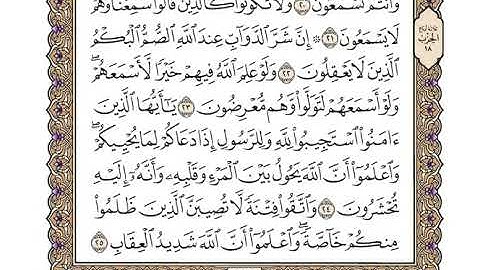 وَأَنتُمْ تَسْمَعُونَ ٢٠ وَلَا تَكُونُوا۟ كَٱلَّذِينَ قَالُوا۟ سَمِعْنَا وَهُمْ
لَا يَسْمَعُونَ ٢١ ۞ إِنَّ شَرَّ ٱلدَّوَآبِّ عِندَ ٱللَّهِ ٱلصُّمُّ ٱلْبُكْمُ
ٱلَّذِينَ لَا يَعْقِلُونَ ٢٢ وَلَوْ عَلِمَ ٱللَّهُ فِيهِمْ خَيْرًا لَّأَسْمَعَهُمْ ۖ
وَلَوْ أَسْمَعَهُمْ لَتَوَلَّوا۟ وَّهُم مُّعْرِضُونَ ٢٣ يَـٰٓأَيُّهَا ٱلَّذِينَ
ءَامَنُوا۟ ٱسْتَجِيبُوا۟ لِلَّهِ وَلِلرَّسُولِ إِذَا دَعَاكُمْ لِمَا يُحْيِيكُمْ ۖ
وَٱعْلَمُوٓا۟ أَنَّ ٱللَّهَ يَحُولُ بَيْنَ ٱلْمَرْءِ وَقَلْبِهِۦ وَأَنَّهُۥٓ إِلَيْهِ
تُحْشَرُونَ ٢٤ وَٱتَّقُوا۟ فِتْنَةً لَّا تُصِيبَنَّ ٱلَّذِينَ ظَلَمُوا۟
مِنكُمْ خَآصَّةً ۖ وَٱعْلَمُوٓا۟ أَنَّ ٱللَّهَ شَدِيدُ ٱلْعِقَابِ ٢٥
الحزب
١٨